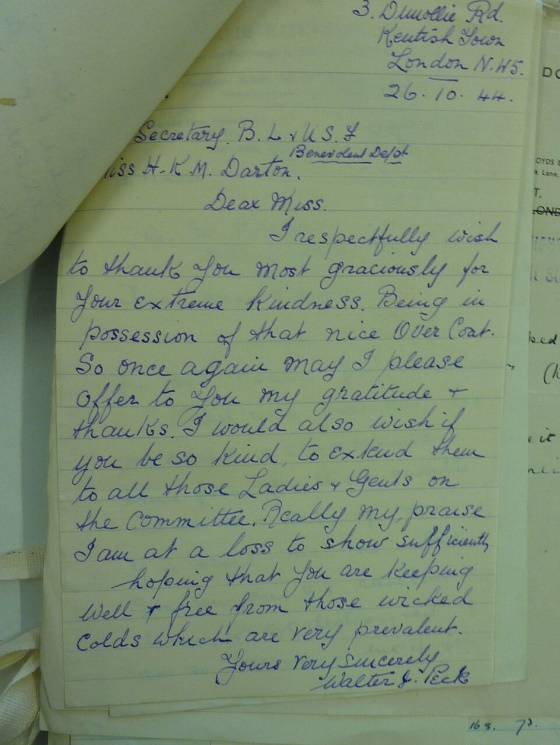 3. Dunollie Rd.
Kentish Town
London N.W5.
26.10.44.
Secretary. B. L & U S. F
Benevolent Dept
iss H. K M. Darton.
Dear Miss.
I respectfully wish
to thank you most graciously for
your extreme kindness. Being in
possession of that nice Over Coat.
So once again may I please
offer to you my gratitude +
thanks. I would also wish if
you be so kind, to extend them
to all those Ladies + Gents on
the Committee. Really my praise
I am at a loss to show sufficiently
hoping that you are keeping
well & free from those wicked
colds which are very prevalent.
Yours very sincerely
Walter J. Peck
DO
OYDS B
Lane,
T,
OND
bed
it
16 s. 7d.